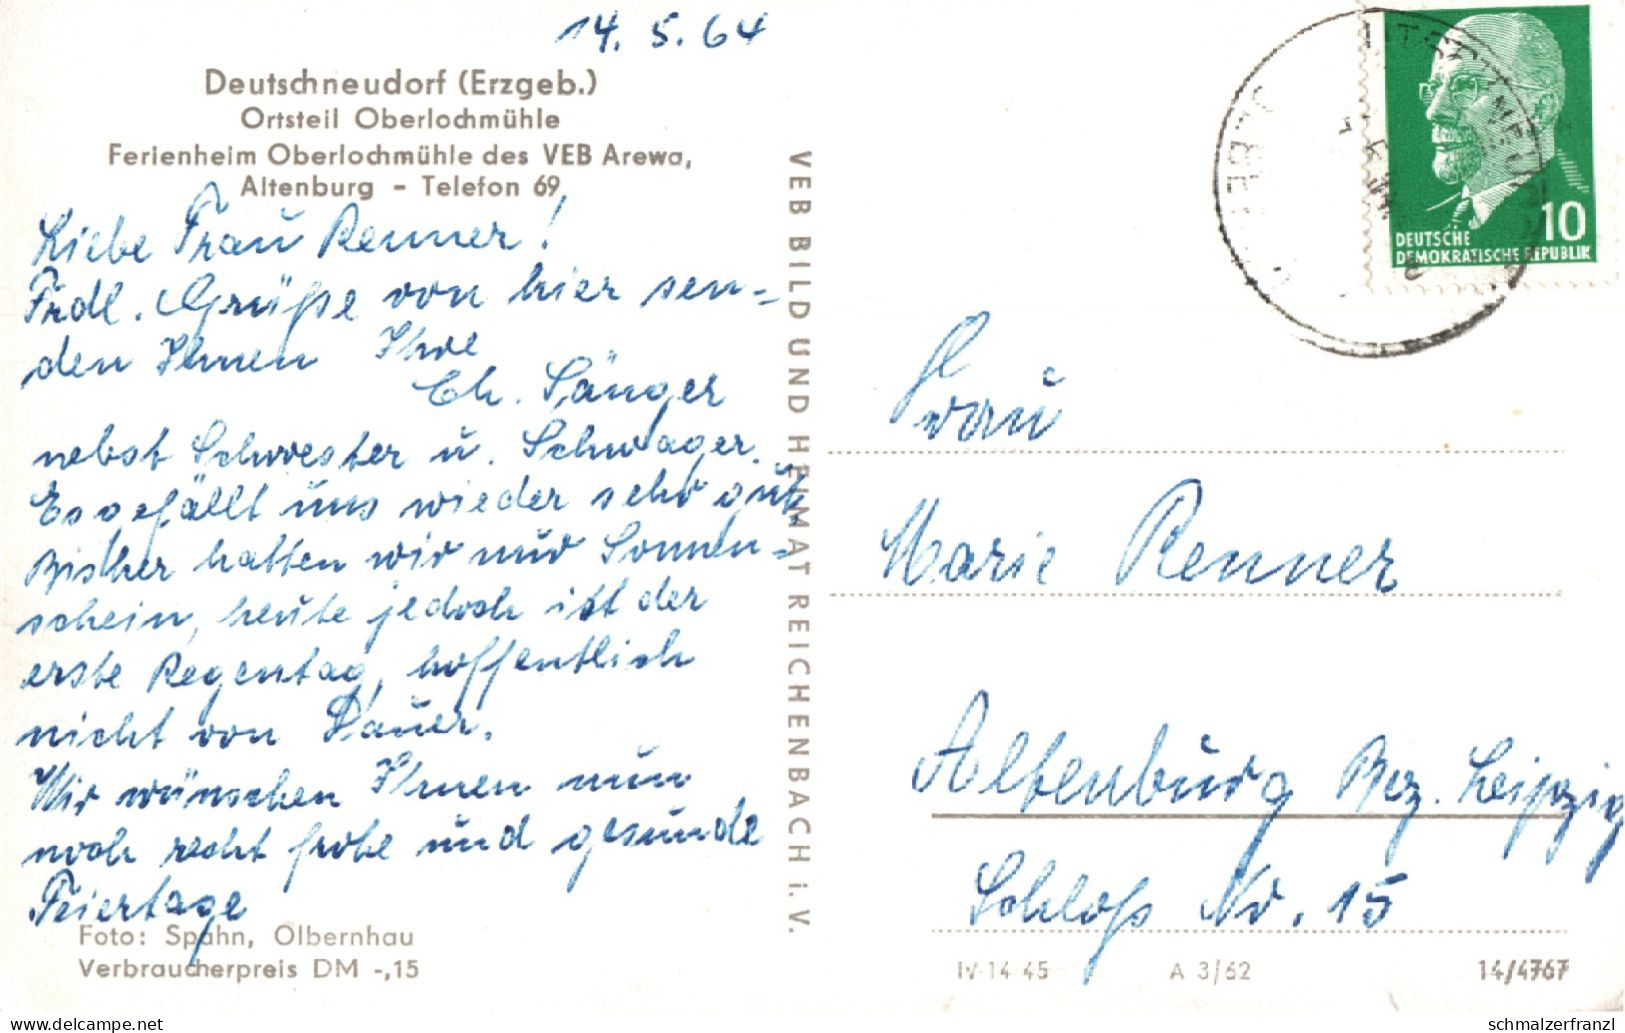 14. 5. 64
Deutschneudorf (Erzgeb.)
Ortsteil Oberlochmühle
Ferienheim Oberlochmühle des VEB Arewa,
Altenburg - Telefon 69
Liebe Frau Renner!
Frdl. Grüße von hier sen-
den Ihnen Ihre
Ch. Sänger
nebst Schwester u. Schwager.
Es gefällt uns wieder sehr gut.
Bisher hatten wir nur Sonnen-
schein, heute jedoch ist der
erste Regentag, hoffentlich
nicht von Dauer.
Wir wünschen Ihnen nun
noch recht frohe und gesunde
Feiertage
Foto: Spahn, Olbernhau
Verbraucherpreis DM -,15
VEB BILD UND HEIMAT REICHENBACH i. V.
10
DEUTSCHE
DEMOKRATISCHE REPUBLIK
Frau
Marie Renner
Altenburg Bez. Leipzig
Schloß Nr. 15
IV-14 45 A 3/62 14/4767
delcampe.net
schmalzerfranzl